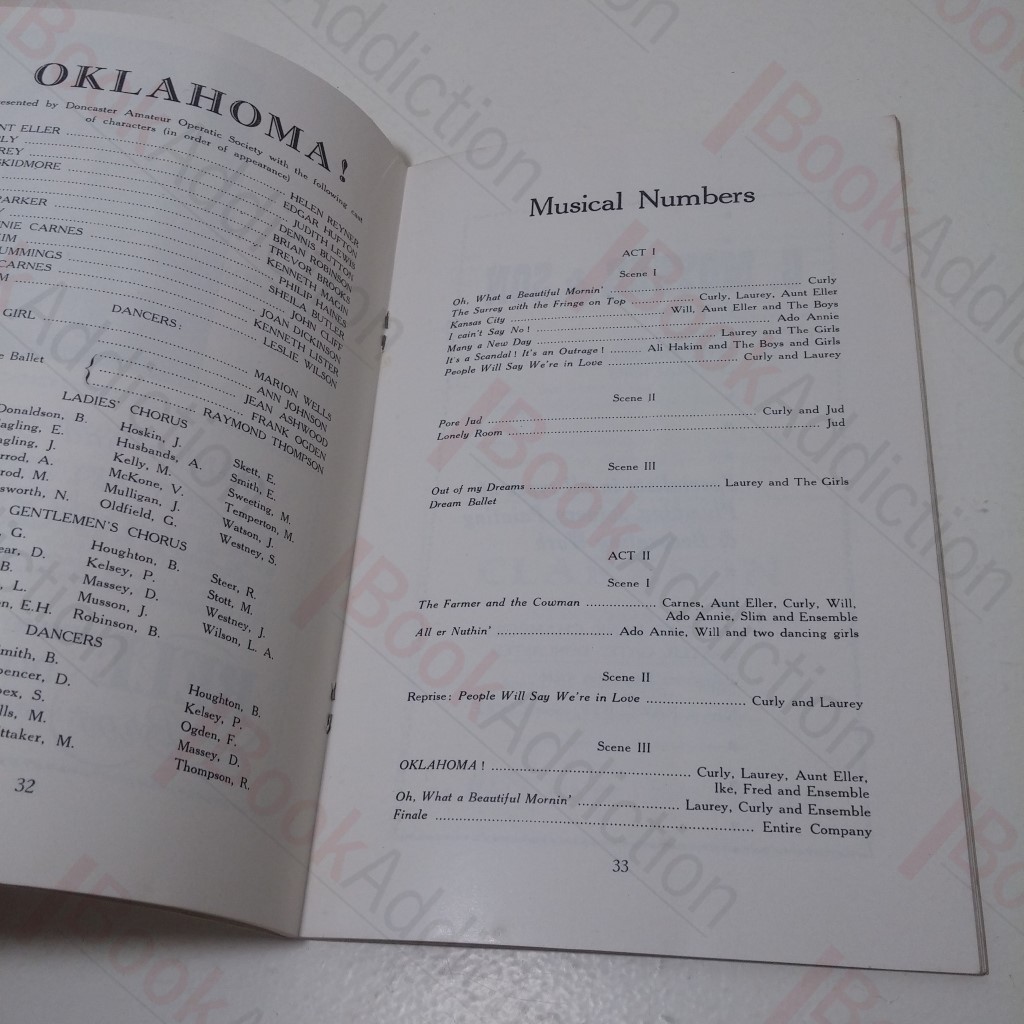 OKLAHOMA!
esented by Doncaster Amateur Operatic Society with the following cast
of characters (in order of appearance)
NT ELLER
LY
REY
SKIDMORE
PARKER
NIE CARNES
KIM
UMMINGS
CARNES
M
GIRL
HELEN REYNER
EDGAR HUFTON
JUDITH LEWIS
DENNIS BUTTON
BRIAN ROBINSON
TREVOR BROOKS
KENNETH MAGIN
PHILIP HAINES
SHEILA BUTLER
JOHN CLIFF
JOAN DICKINSON
KENNETH LISTER
LESLIE WILSON
DANCERS:
e Ballet
MARION WELLS
ANN JOHNSON
JEAN ASHWOOD
FRANK OGDEN
RAYMOND THOMPSON
LADIES' CHORUS
Donaldson, B. Hoskin, J. Skett, E.
agling, E. Husbands, A. Smith, E.
agling, J. Kelly, M. Sweeting, M.
rrod, A. McKone, V. Temperton, M.
rod, M. Mulligan, J. Watson, J.
sworth, N. Oldfield, G. Westney, S.
GENTLEMEN'S CHORUS
, G. Houghton, B. Steer, R.
ear, D. Kelsey, P. Stott, M.
B. Massey, D. Westney, J.
, L. Musson, J. Wilson, L. A.
n, E.H. Robinson, B.
DANCERS
mith, B. Houghton, B.
pencer, D. Kelsey, P.
pex, S. Ogden, F.
lls, M. Massey, D.
ttaker, M. Thompson, R.
32
Musical Numbers
ACT I
Scene I
Oh, What a Beautiful Mornin' ........ Curly
The Surrey with the Fringe on Top ........ Curly, Laurey, Aunt Eller
Kansas City ........ Will, Aunt Eller and The Boys
I cain't Say No! ........ Ado Annie
Many a New Day ........ Laurey and The Girls
It's a Scandal! It's an Outrage! ........ Ali Hakim and The Boys and Girls
People Will Say We're in Love ........ Curly and Laurey
Scene II
Pore Jud ........ Curly and Jud
Lonely Room ........ Jud
Scene III
Out of my Dreams ........ Laurey and The Girls
Dream Ballet
ACT II
Scene I
The Farmer and the Cowman ........ Carnes, Aunt Eller, Curly, Will,
Ado Annie, Slim and Ensemble
All er Nuthin' ........ Ado Annie, Will and two dancing girls
Scene II
Reprise: People Will Say We're in Love ........ Curly and Laurey
Scene III
OKLAHOMA! ........ Curly, Laurey, Aunt Eller,
Ike, Fred and Ensemble
Oh, What a Beautiful Mornin' ........ Laurey, Curly and Ensemble
Finale ........ Entire Company
33
BookAddiction